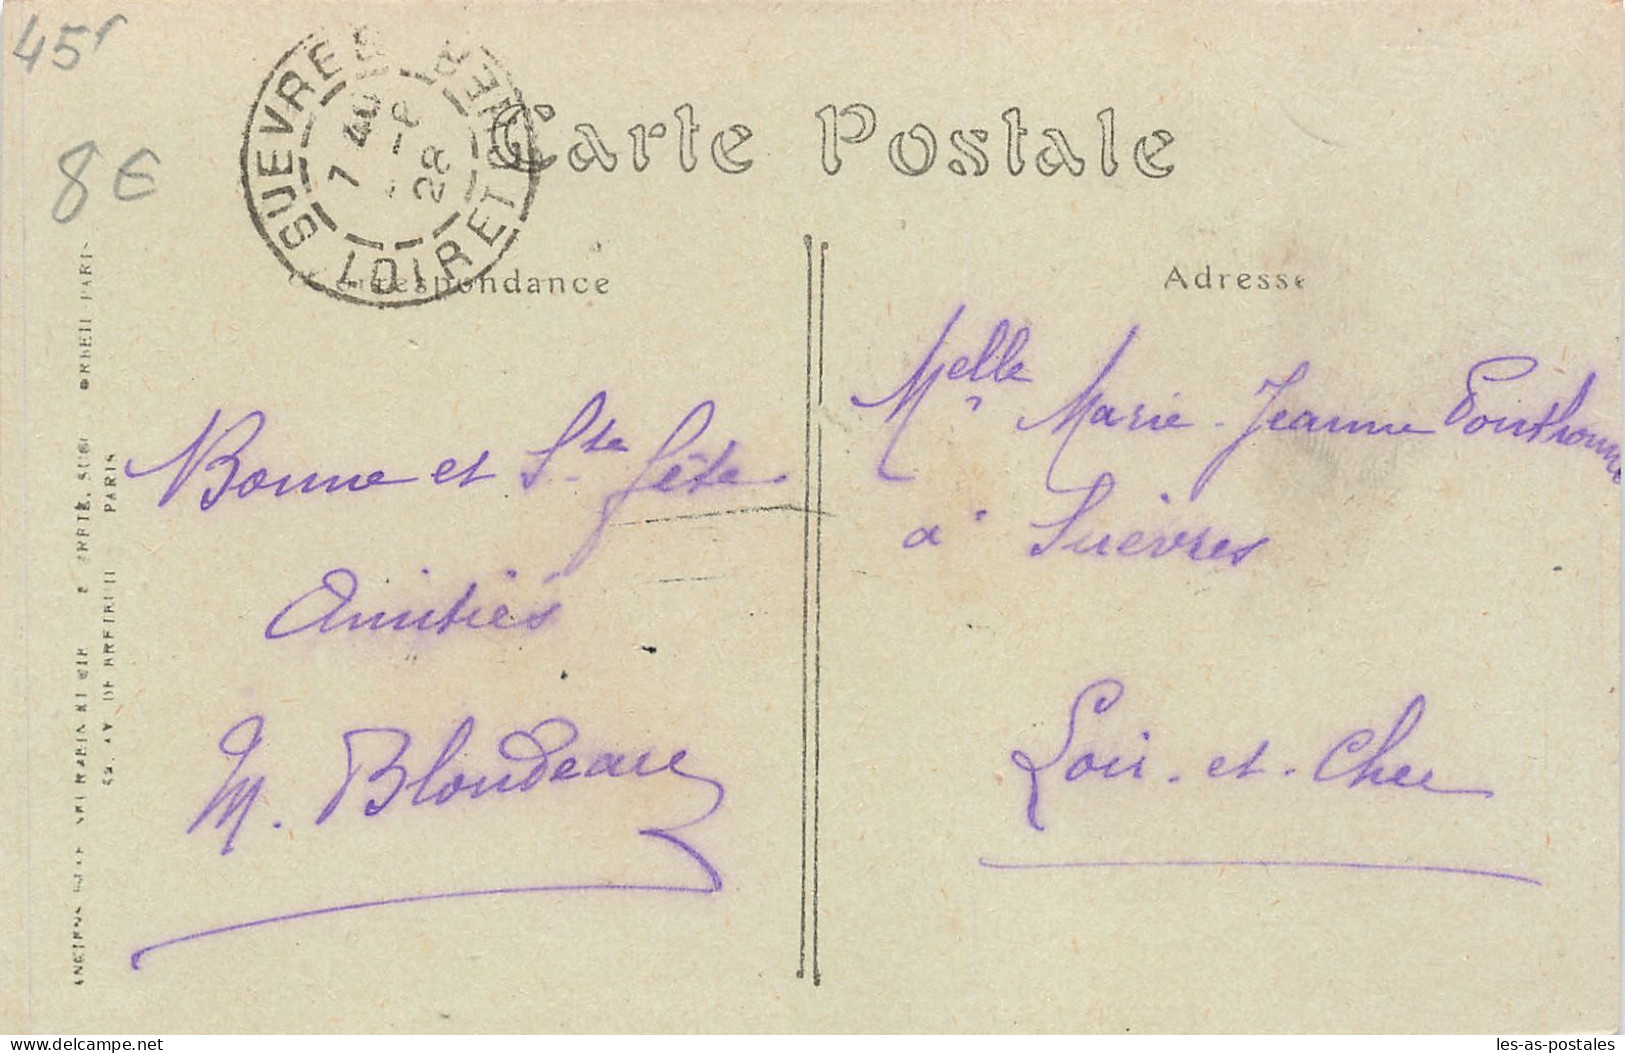 45f
8€
SUEVRES
7 40
28
LOIR ET CHER
Carte Postale
Correspondance
Adresse
PARIS
Bonne et Ste fête.
Amitiés
M. Blondeau
Melle Marie-Jeanne
à Suèvres
Loir-et-Cher
Delcampe.net - Tomtom45
les-as-postales